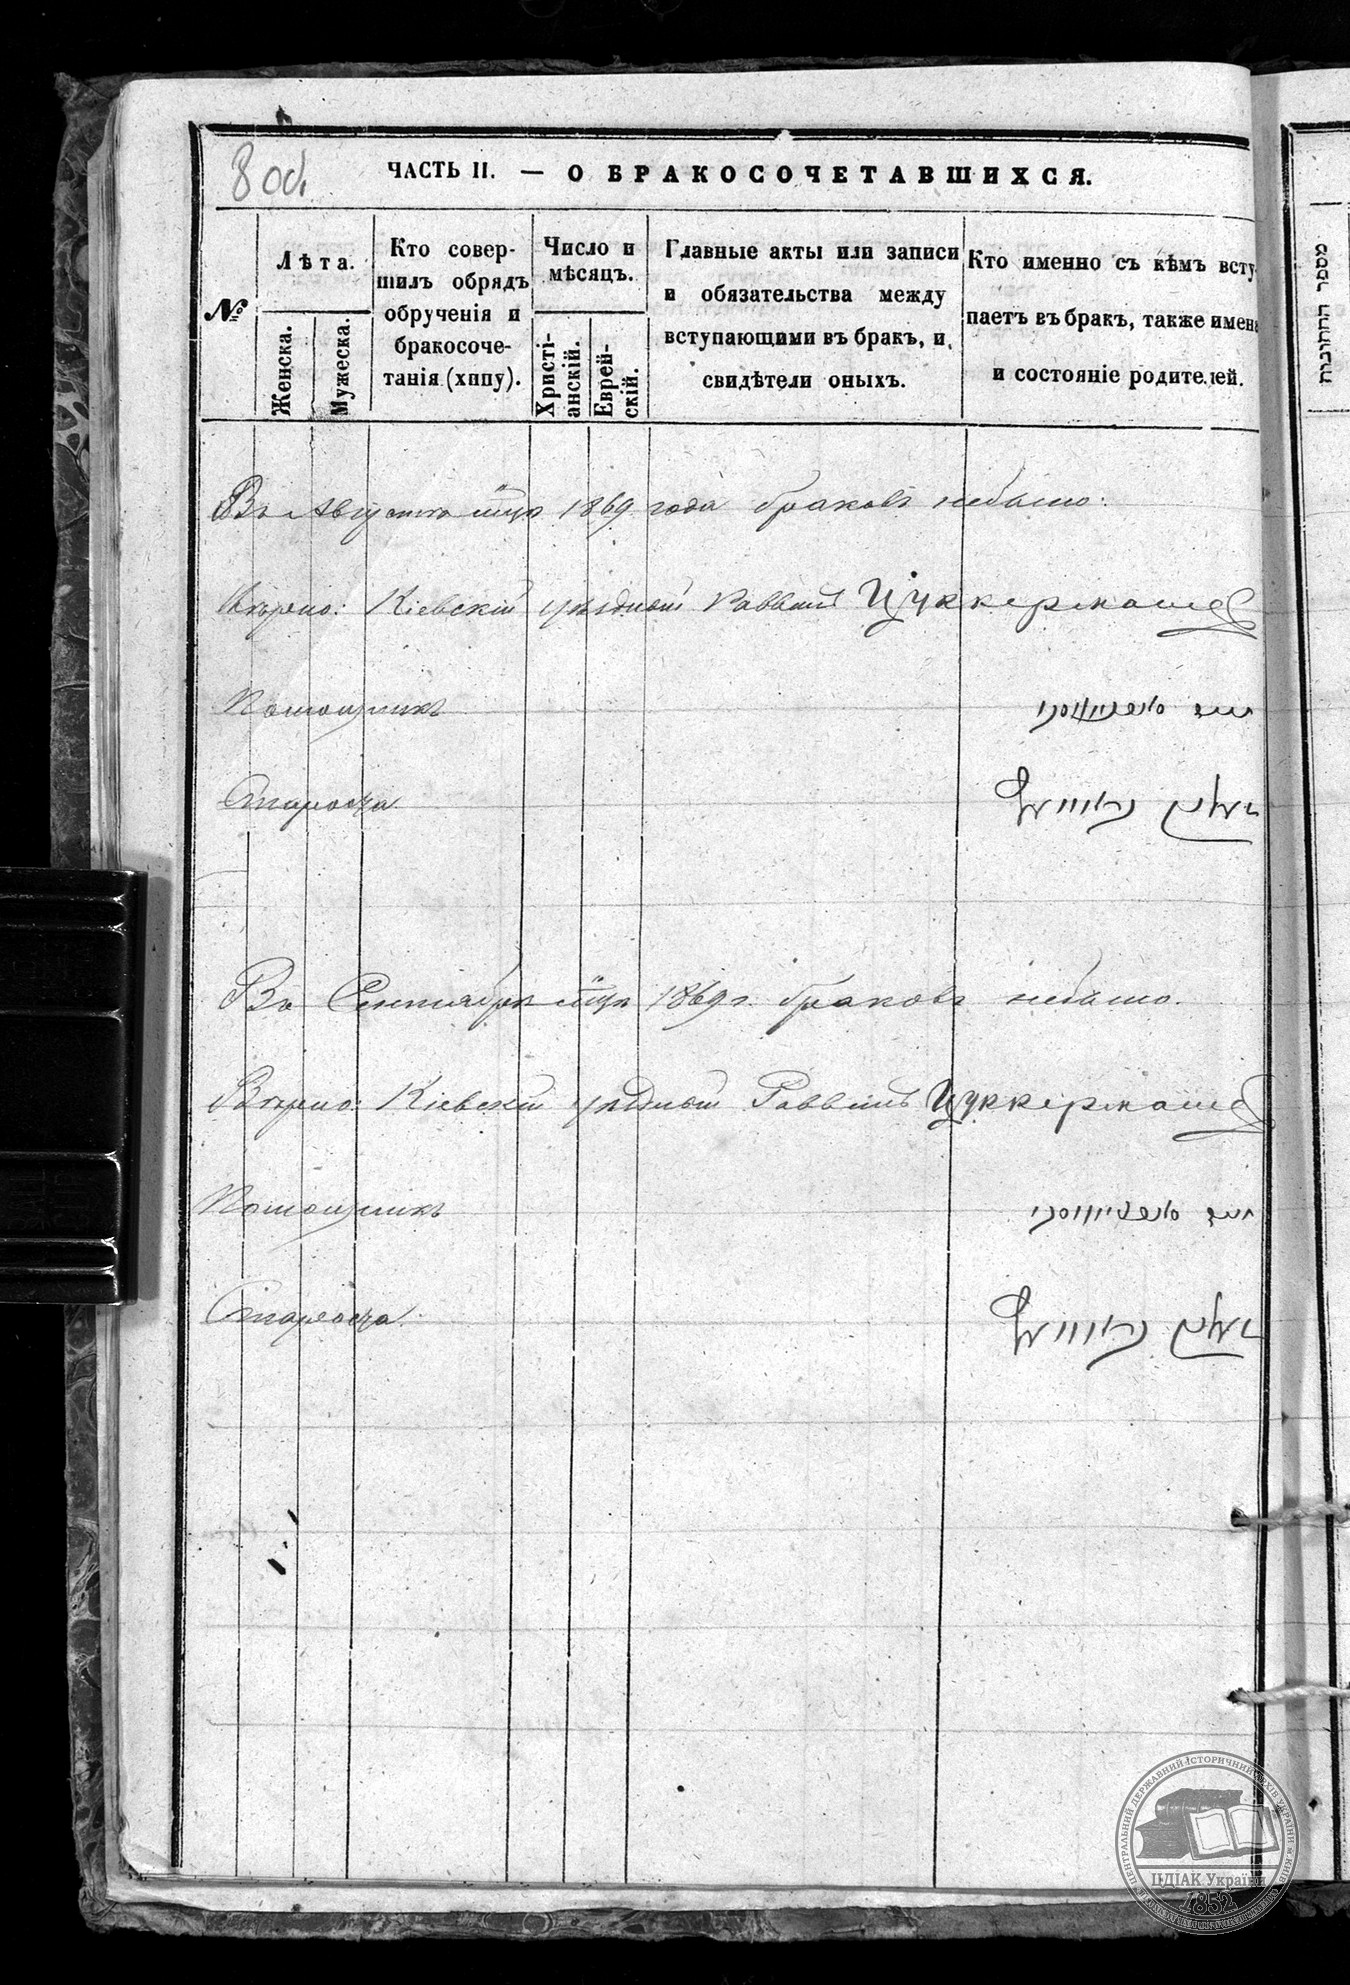 8 об.
ЧАСТЬ II. — О БРАКОСОЧЕТАВШИХСЯ.
№
Лѣта.
Женска.
Мужеска.
Кто совер-
шилъ обрядъ
обрученія и
бракосоче-
танія (хппу).
Число и
мѣсяцъ.
Христі-
анскій.
Еврей-
скій.
Главные акты или записи
и обязательства между
вступающими въ бракъ, и
свидѣтели оныхъ.
Кто именно съ кѣмъ всту
паетъ въ бракъ, также имен
и состояніе родителей.
Въ Августѣ мцѣ 1869 года браковъ небыло.
Вѣрно: Кіевскій уѣздный Раввинъ Цуккерманъ
Помощникъ
Староста
Въ Сентябрѣ мцѣ 1869 г. браковъ небыло.
Вѣрно: Кіевскій уѣздный Раввинъ Цуккерманъ
Помощникъ
Староста
מספר החתונות
ЦЕНТРАЛЬНИЙ ДЕРЖАВНИЙ ІСТОРИЧНИЙ АРХІВ УКРАЇНИ М. КИЇВ
ЦДІАК України
1852